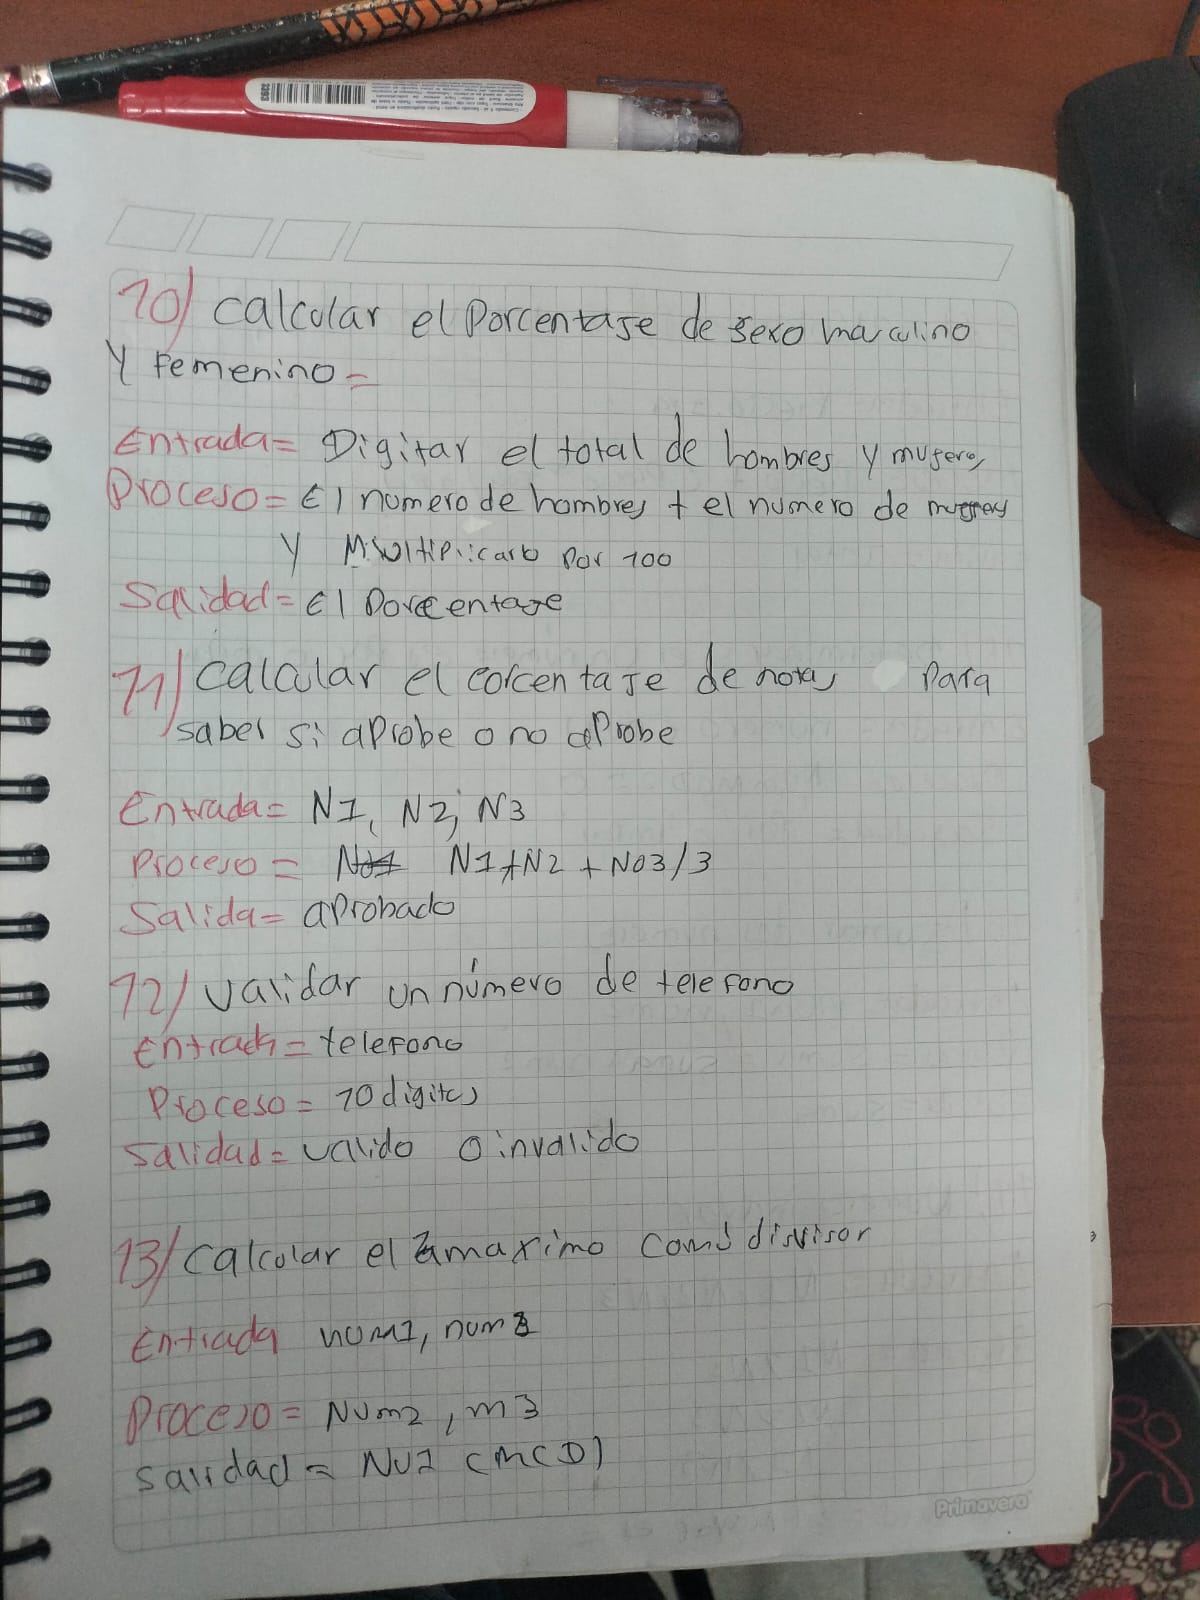 3393
10) Calcular el Porcentaje de sexo masculino
Y Femenino =
Entrada = Digitar el total de hombres y mujeres
Proceso = El numero de hombres + el numero de mujeres
Y Multiplicarlo por 100
Salidad = El Porcentaje
11) Calcular el Porcentaje de notas Para
saber si aprobe o no aprobe
Entrada = N1, N2, N3
Proceso = N1+N2+NO3/3
Salida = aprobado
12) Validar un número de telefono
Entrada = telefono
Proceso = 10 digitos
Salidad = valido o invalido
13) Calcular el maximo común divisor
Entrada num1, num2
Proceso = Num2, m3
Salidad = NU1 (MCD)
Primavera